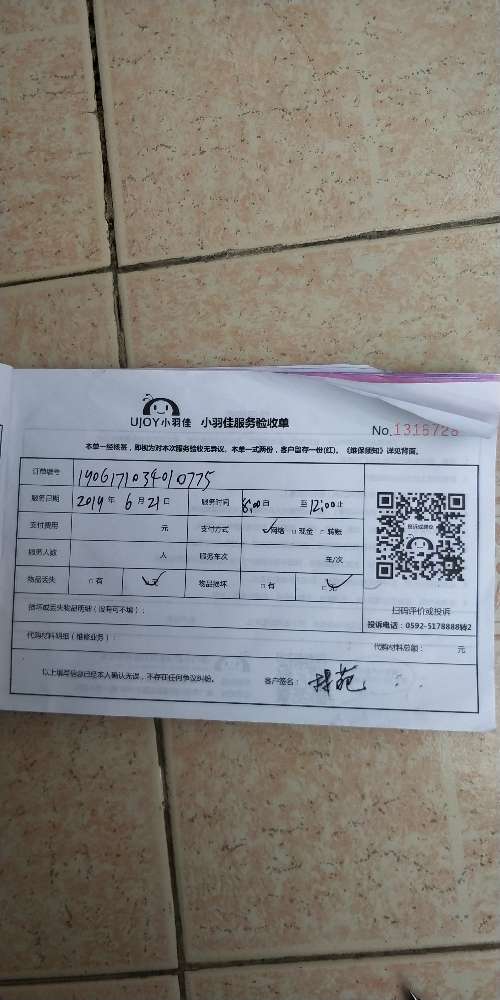 UJOY小羽佳 小羽佳服务验收单
No.1315728
本单一经签署，即视为对本次服务验收无异议。本单一式两份，客户留存一份(红)。《维保须知》详见背面。
订单编号 1906171034010775
服务日期 2019年6月21日 服务时间 8:00自 至12:00止
支付费用 元 支付方式 ☑网络 □现金 □转账
服务人数 人 服务车次 车/次
物品丢失 □有 ☑无 物品损坏 □有 ☑无
投诉或建议
扫码评价或投诉
投诉电话：0592-5178888转2
损坏或丢失物品明细（没有可不填）：
代购材料明细（维修业务）： 代购材料总额： 元
以上填写信息已经本人确认无误，不存在任何争议纠纷。 客户签名：